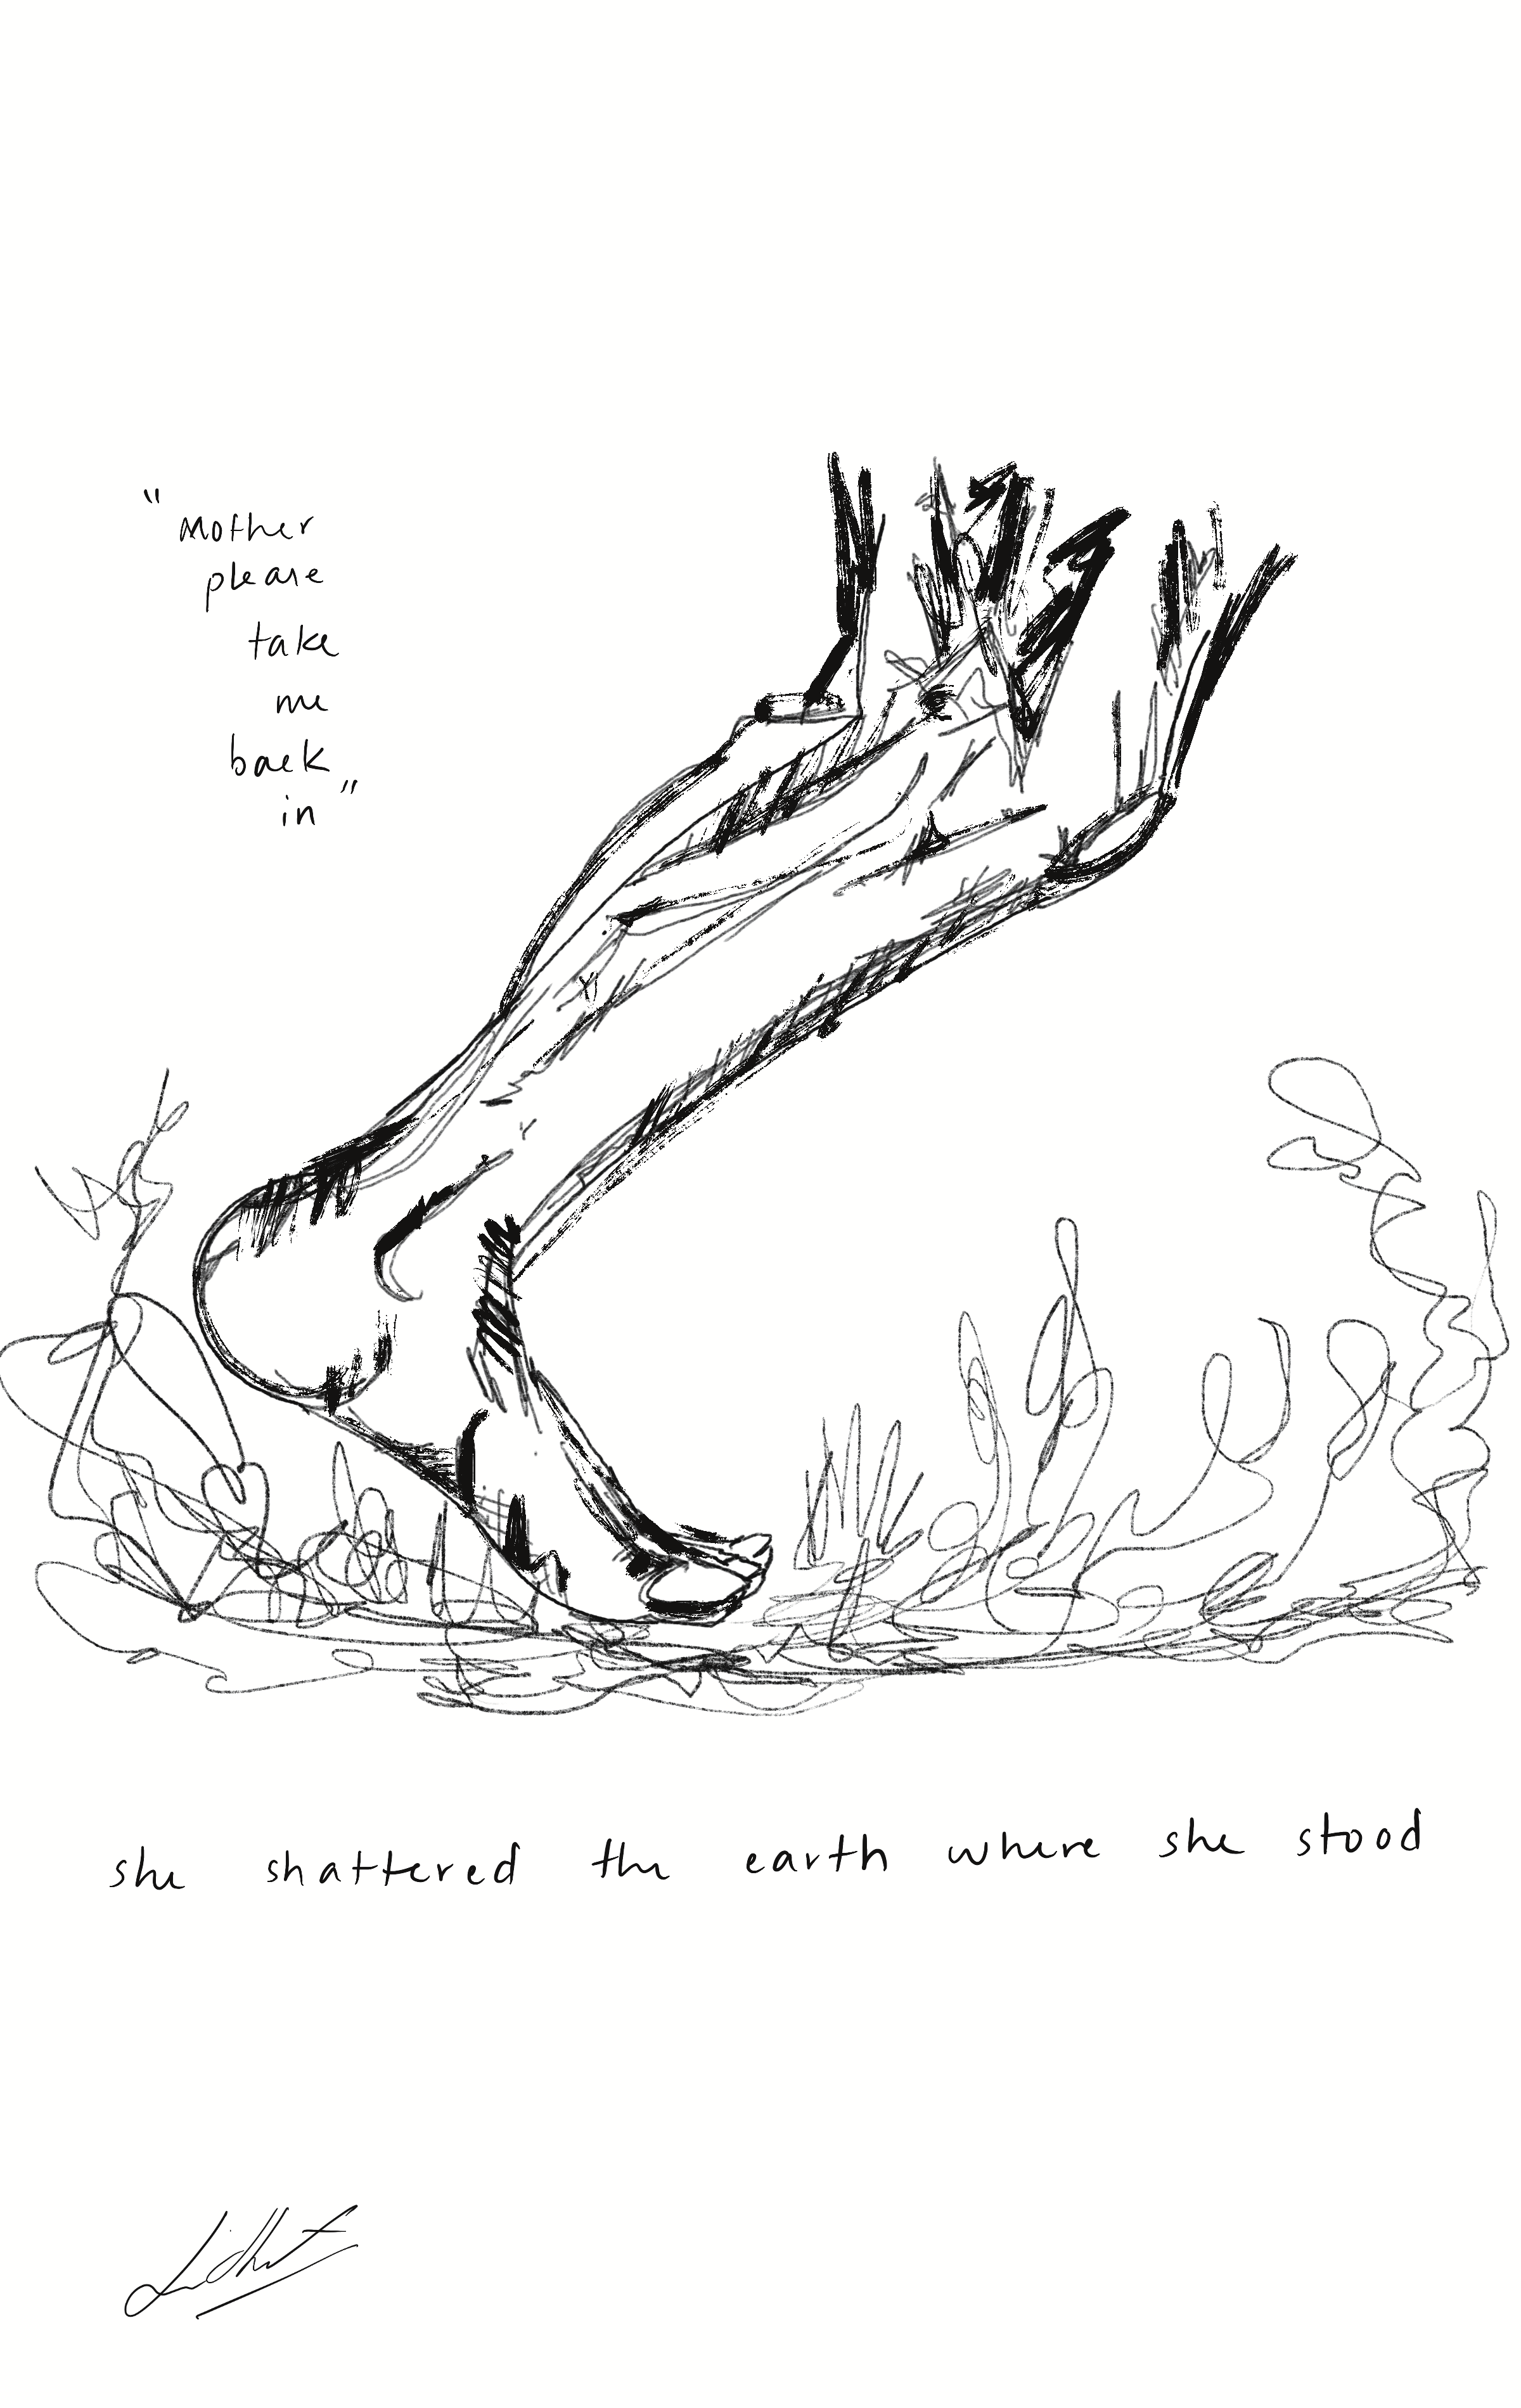 "
Mother
please
take
me
back
in"
she shattered the earth where she stood